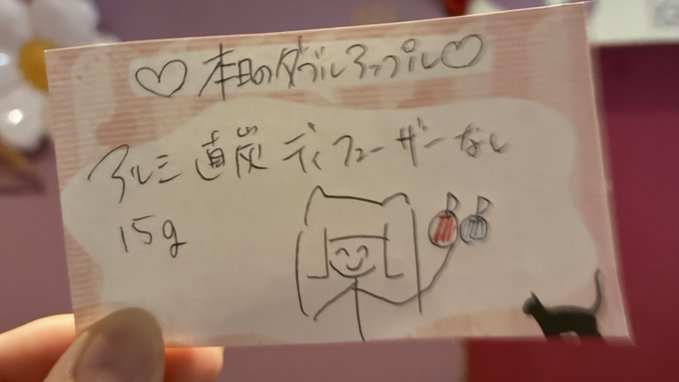 ♡本日のダブルアップル♡
アルミ 直炭 ディフューザーなし
15g